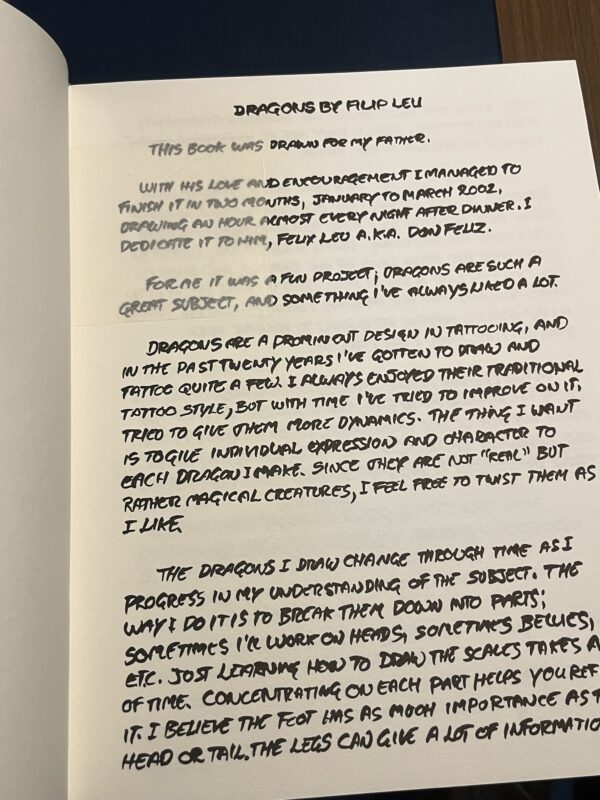 DRAGONS BY FILIP LEU
THIS BOOK WAS DRAWN FOR MY FATHER.
WITH HIS LOVE AND ENCOURAGEMENT I MANAGED TO
FINISH IT IN TWO MONTHS, JANUARY TO MARCH 2002,
DRAWING AN HOUR ALMOST EVERY NIGHT AFTER DINNER. I
DEDICATE IT TO HIM, FELIX LEU A.K.A. DON FELIZ.
FOR ME IT WAS A FUN PROJECT; DRAGONS ARE SUCH A
GREAT SUBJECT, AND SOMETHING I'VE ALWAYS LIKED A LOT.
DRAGONS ARE A PROMINENT DESIGN IN TATTOOING, AND
IN THE PAST TWENTY YEARS I'VE GOTTEN TO DRAW AND
TATTOO QUITE A FEW. I ALWAYS ENJOYED THEIR TRADITIONAL
TATTOO STYLE, BUT WITH TIME I'VE TRIED TO IMPROVE ON IT,
TRIED TO GIVE THEM MORE DYNAMICS. THE THING I WANT
IS TO GIVE INDIVIDUAL EXPRESSION AND CHARACTER TO
EACH DRAGON I MAKE. SINCE THEY ARE NOT "REAL" BUT
RATHER MAGICAL CREATURES, I FEEL FREE TO TWIST THEM AS
I LIKE.
THE DRAGONS I DRAW CHANGE THROUGH TIME AS I
PROGRESS IN MY UNDERSTANDING OF THE SUBJECT. THE
WAY I DO IT IS TO BREAK THEM DOWN INTO PARTS;
SOMETIMES I'LL WORK ON HEADS, SOMETIMES BELLIES,
ETC. JUST LEARNING HOW TO DRAW THE SCALES TAKES A
OF TIME. CONCENTRATING ON EACH PART HELPS YOU REF
IT. I BELIEVE THE FOOT HAS AS MUCH IMPORTANCE AS T
HEAD OR TAIL. THE LEGS CAN GIVE A LOT OF INFORMATIO